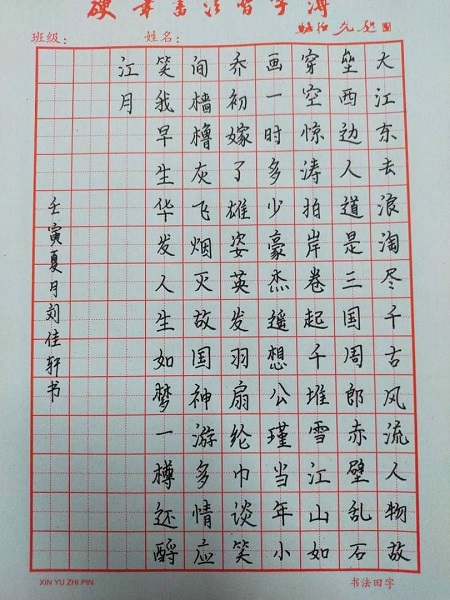 硬笔书法习字簿
班级： 姓名：
大江东去浪淘尽千古风流人物故
垒西边人道是三国周郎赤壁乱石
穿空惊涛拍岸卷起千堆雪江山如
画一时多少豪杰遥想公瑾当年小
乔初嫁了雄姿英发羽扇纶巾谈笑
间樯橹灰飞烟灭故国神游多情应
笑我早生华发人生如梦一樽还酹
江月
壬寅夏月刘佳轩书
XIN YU ZHI PIN
书法田字